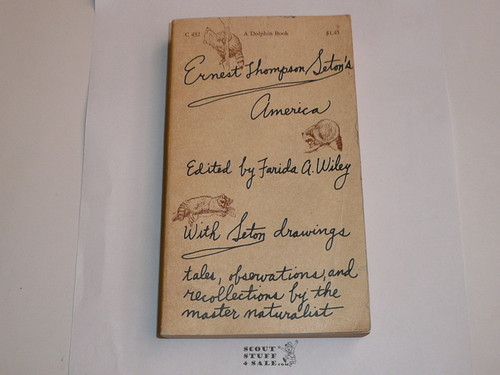 C 432 A Dolphin Book $1.45
Ernest Thompson Seton's
America
Edited by Farida A. Wiley
With Seton drawings
tales, observations, and
recollections by the
master naturalist
SCOUT
STUFF
4 SALE...